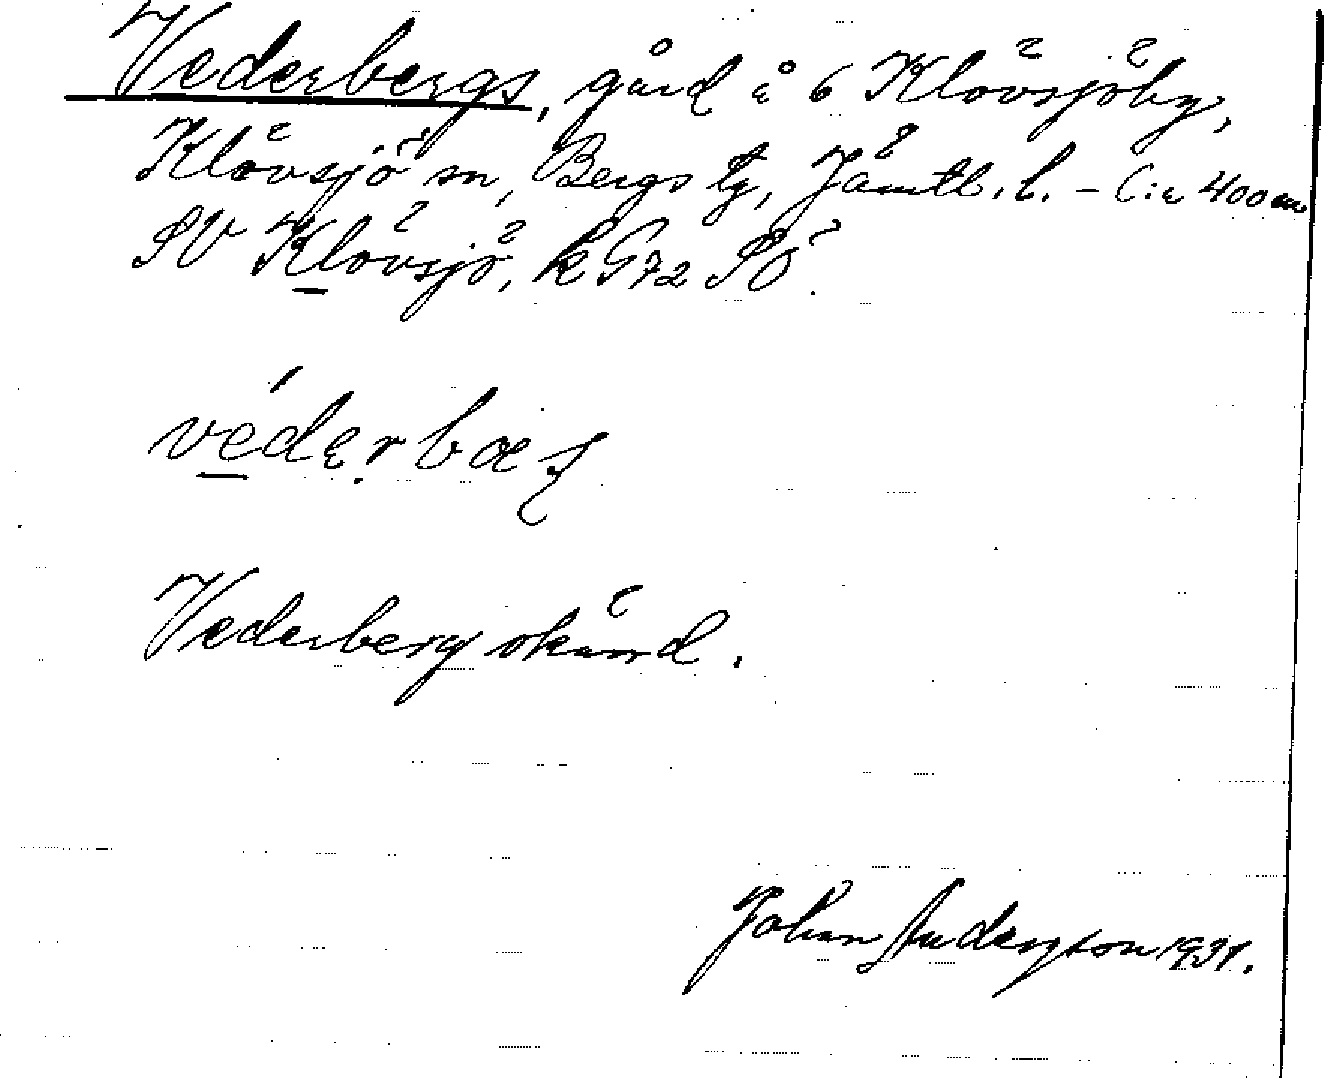 Vederbergs, gård å 6 Klövsjöby,
Klövsjö sn, Bergs tg, Jämtl. l. – C:a 400 m
SV Klövsjö, k G72 SÖ.
véderbæʂ
Vederberg okänd.
Johan Anderzson 1931.